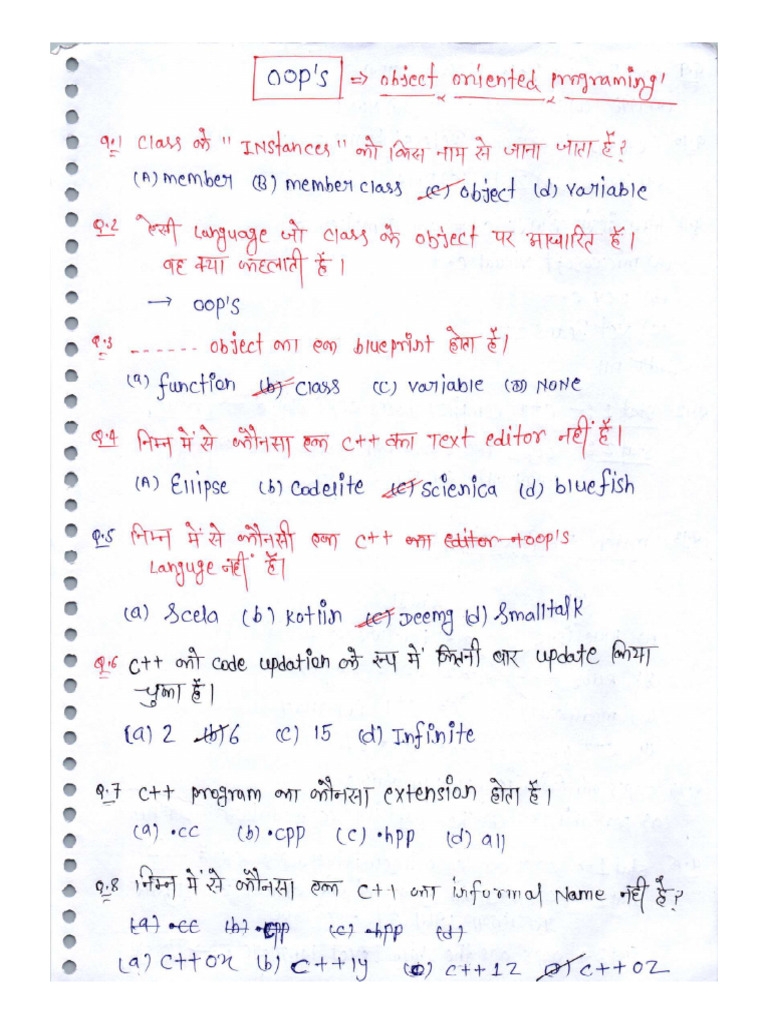 OOP's ⇒ object oriented programing'
Q.1 Class के "INstances" को किस नाम से जाना जाता हैं?
(A) member (B) member class (c) object (d) variable
Q.2 ऐसी Language जो class के object पर आधारित हैं।
वह क्या कहलाती हैं।
→ OOP'S
Q.3 ------- object का एक blueprint होता हैं।
(a) function (b) class (c) variable (D) NONE
Q.4 निम्न में से कौनसा एक C++ का Text editor नहीं हैं।
(A) Ellipse (b) Codelite (c) Scienica (d) bluefish
Q.5 निम्न में से कौनसी एक C++ का editor न oop's
Languge नहीं हैं।
(a) Scela (b) Kotlin (c) Deemg (d) Smalltalk
Q.6 C++ को code updation के रूप में कितनी बार update किया
चुका हैं।
(a) 2 (b) 6 (c) 15 (d) Infinite
Q.7 C++ program का कौनसा extension होता हैं।
(a) .cc (b) .cpp (c) .hpp (d) all
Q.8 निम्न में से कौनसा एक C++ का informal Name नहीं हैं?
(a) .cc (b) .cpp (c) .hpp (d)
(a) C++0x (b) C++1y (c) C++1z (D) C++0z